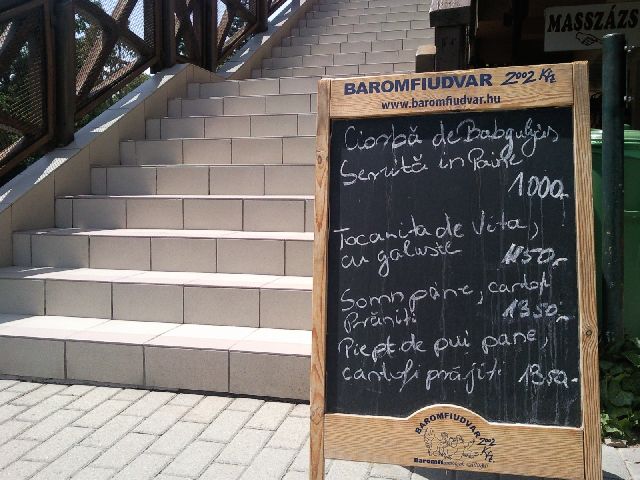 MASSZÁZS
BAROMFIUDVAR 2002 Kft.
www.baromfiudvar.hu
Ciorbă de Babgulyás
Servită in Paine
1000,-
Tocanita de Vita,
cu galuste 1150,-
Somn pane, cartofi
Prăjiti 1350,-
Piept de pui pane,
cartofi prăjiti 1350,-
BAROMFIUDVAR
2002 Kft.